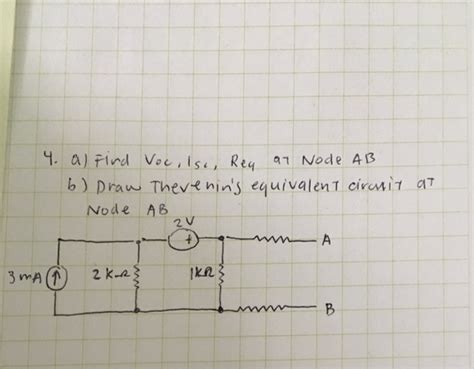 4. a) Find Voc, Isc, Req at Node AB
b) Draw Thevenin's equivalent circuit at
Node AB
2V
+
A
3mA
2kΩ
1kΩ
B